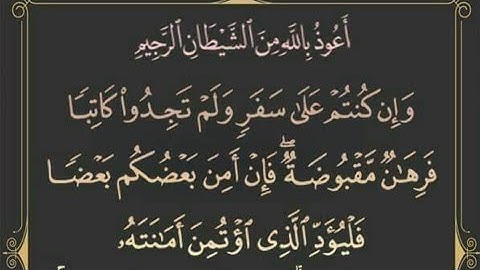 أَعُوذُ بِٱللَّهِ مِنَ ٱلشَّيْطَانِ ٱلرَّجِيمِ
وَإِن كُنتُمْ عَلَىٰ سَفَرٍ وَلَمْ تَجِدُوا۟ كَاتِبًا
فَرِهَـٰنٌ مَّقْبُوضَةٌ ۖ فَإِنْ أَمِنَ بَعْضُكُم بَعْضًا
فَلْيُؤَدِّ ٱلَّذِى ٱؤْتُمِنَ أَمَـٰنَتَهُۥ